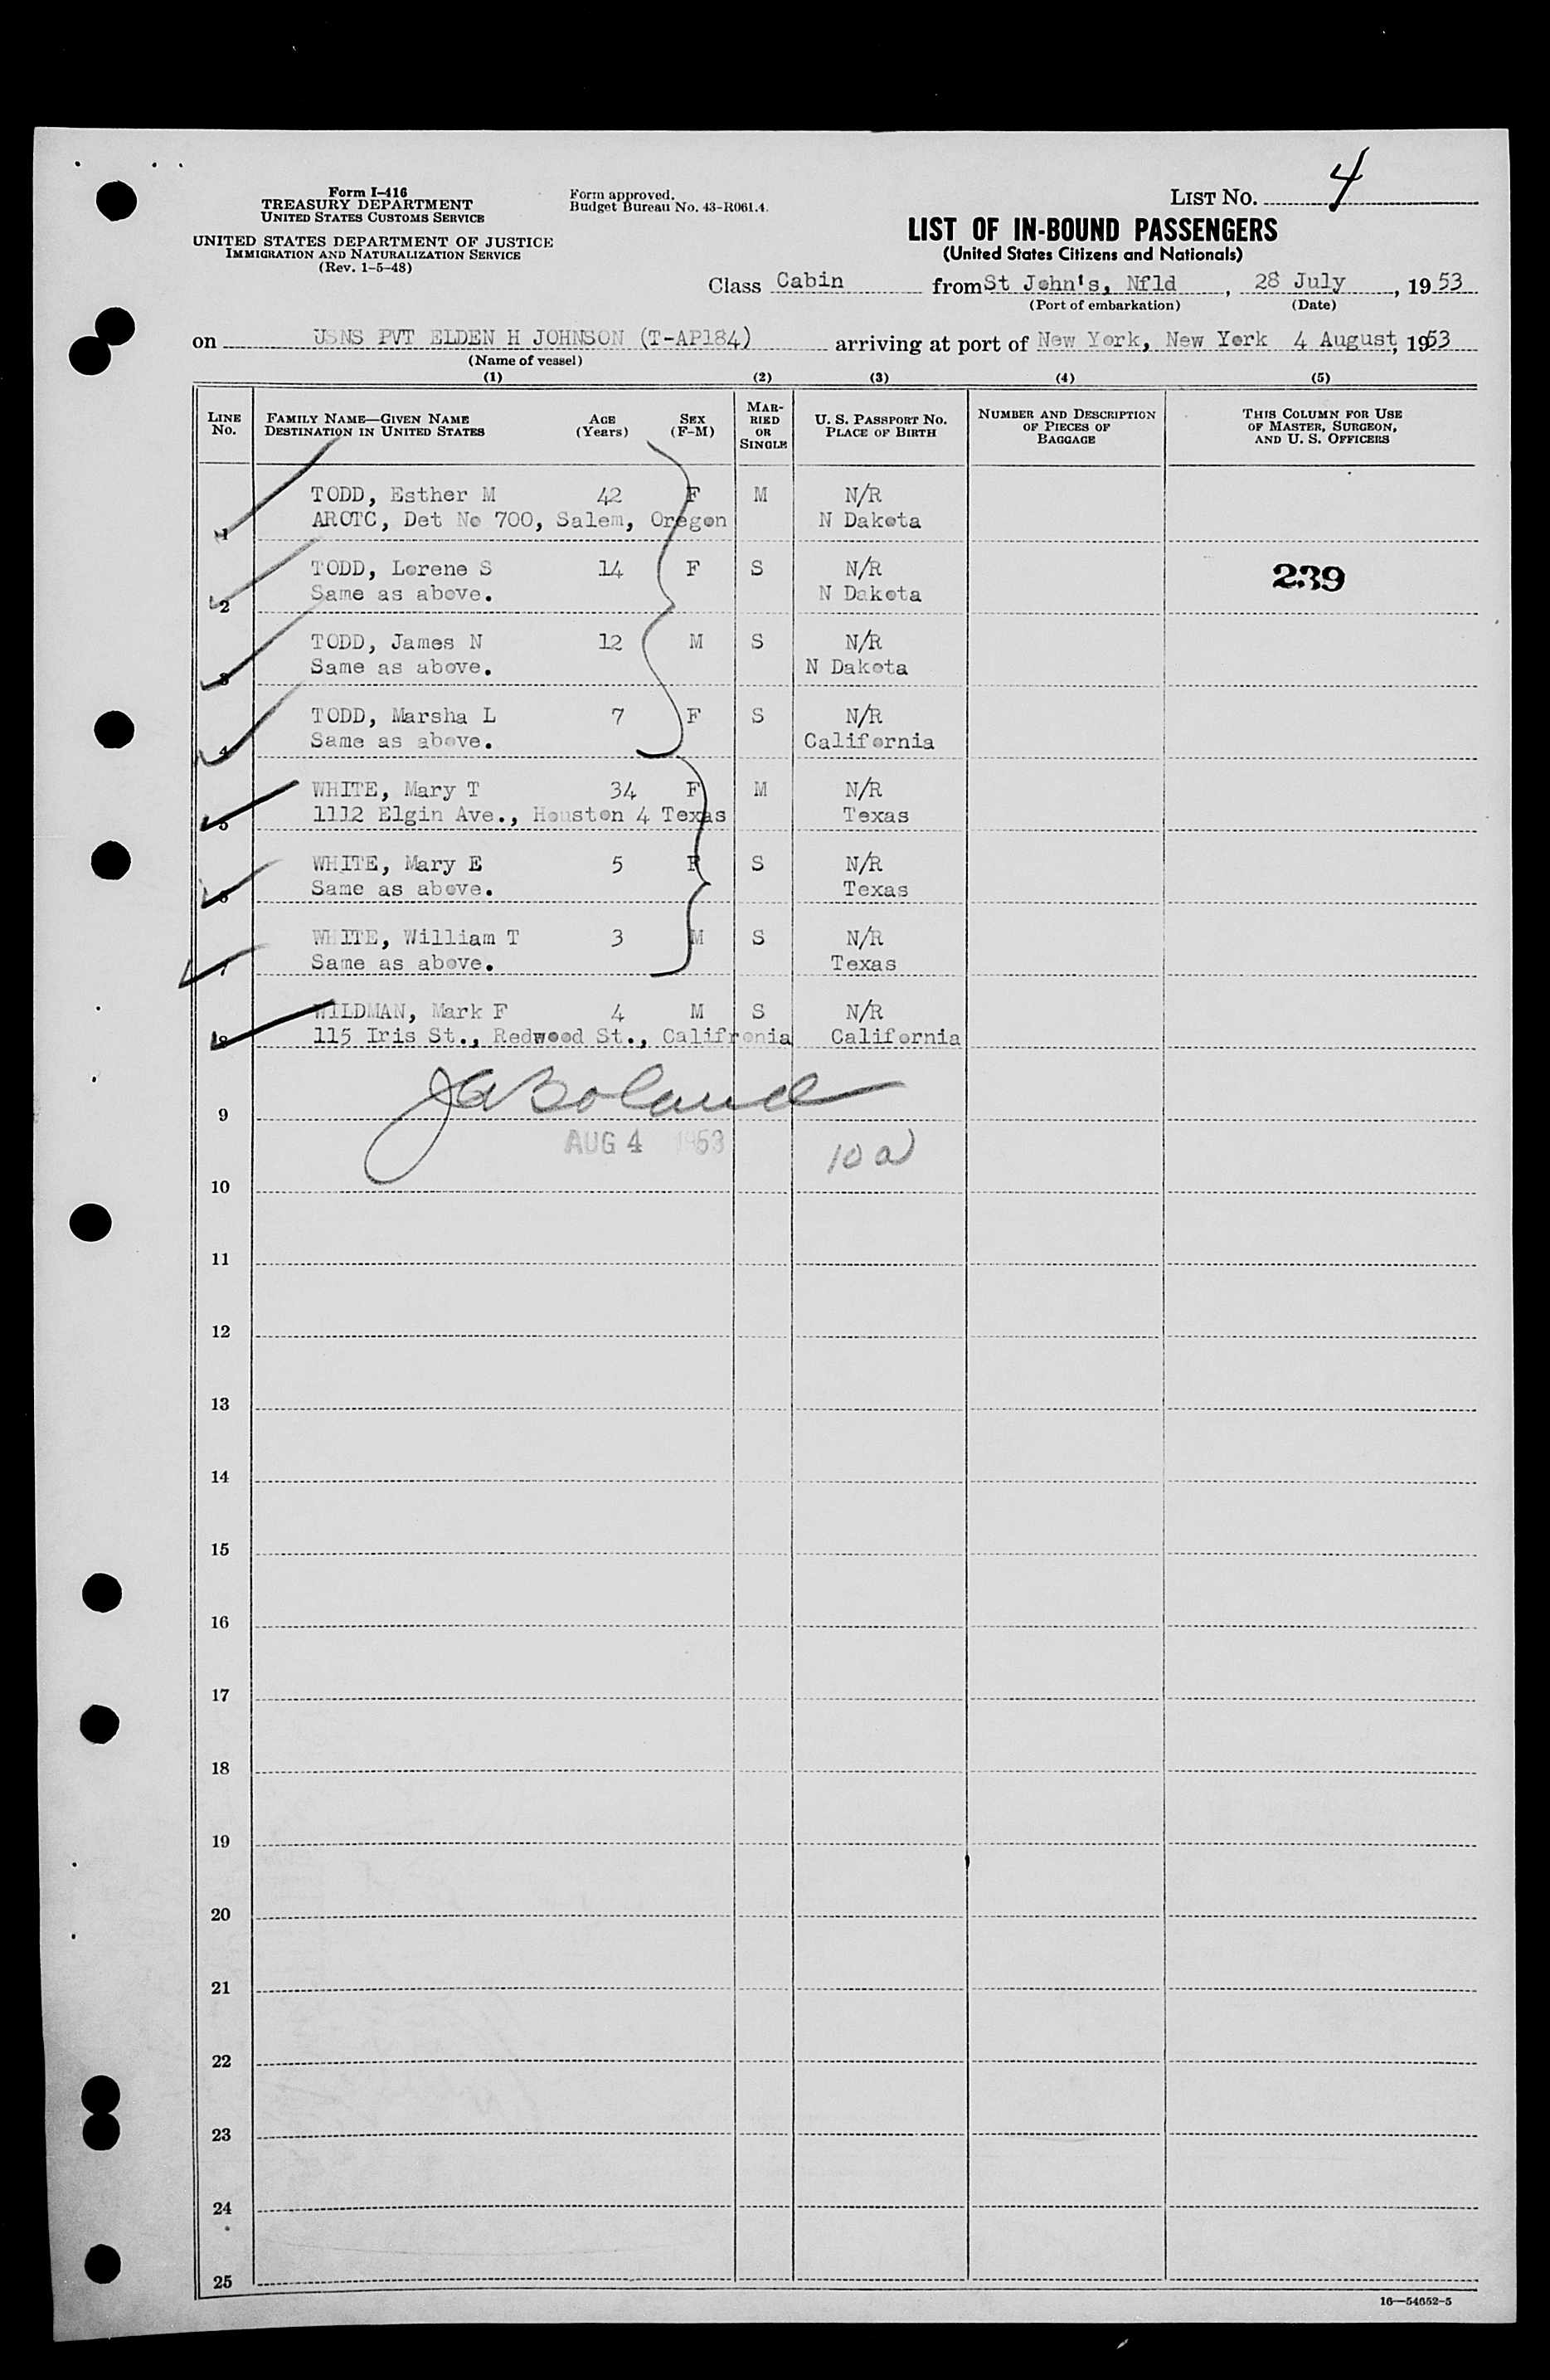 Form I-416
TREASURY DEPARTMENT
UNITED STATES CUSTOMS SERVICE
UNITED STATES DEPARTMENT OF JUSTICE
IMMIGRATION AND NATURALIZATION SERVICE
(Rev. 1-5-48)
Form approved.
Budget Bureau No. 43-R061.4.
LIST NO. 4
LIST OF IN-BOUND PASSENGERS
(United States Citizens and Nationals)
Class Cabin from St John's, Nfld, 28 July, 1953
(Port of embarkation) (Date)
on USNS PVT ELDEN H JOHNSON (T-AP184) arriving at port of New York, New York 4 August, 1953
(Name of vessel)
(1) (2) (3) (4) (5)
LINE NO. FAMILY NAME—GIVEN NAME DESTINATION IN UNITED STATES AGE (Years) SEX (F-M) MARRIED OR SINGLE U. S. PASSPORT NO. PLACE OF BIRTH NUMBER AND DESCRIPTION OF PIECES OF BAGGAGE THIS COLUMN FOR USE OF MASTER, SURGEON, AND U. S. OFFICERS
TODD, Esther M 42 F M N/R
1 AROTC, Det No 700, Salem, Oregon N Dakota
TODD, Lorene S 14 F S N/R 239
2 Same as above. N Dakota
TODD, James N 12 M S N/R
3 Same as above. N Dakota
TODD, Marsha L 7 F S N/R
4 Same as above. California
WHITE, Mary T 34 F M N/R
5 1112 Elgin Ave., Houston 4 Texas Texas
WHITE, Mary E 5 F S N/R
6 Same as above. Texas
WHITE, William T 3 M S N/R
7 Same as above. Texas
WILDMAN, Mark F 4 M S N/R
8 115 Iris St., Redwood St., Califronia California
JABoland
9
AUG 4 1953 10 a
10
11
12
13
14
15
16
17
18
19
20
21
22
23
24
25
16—54652-5